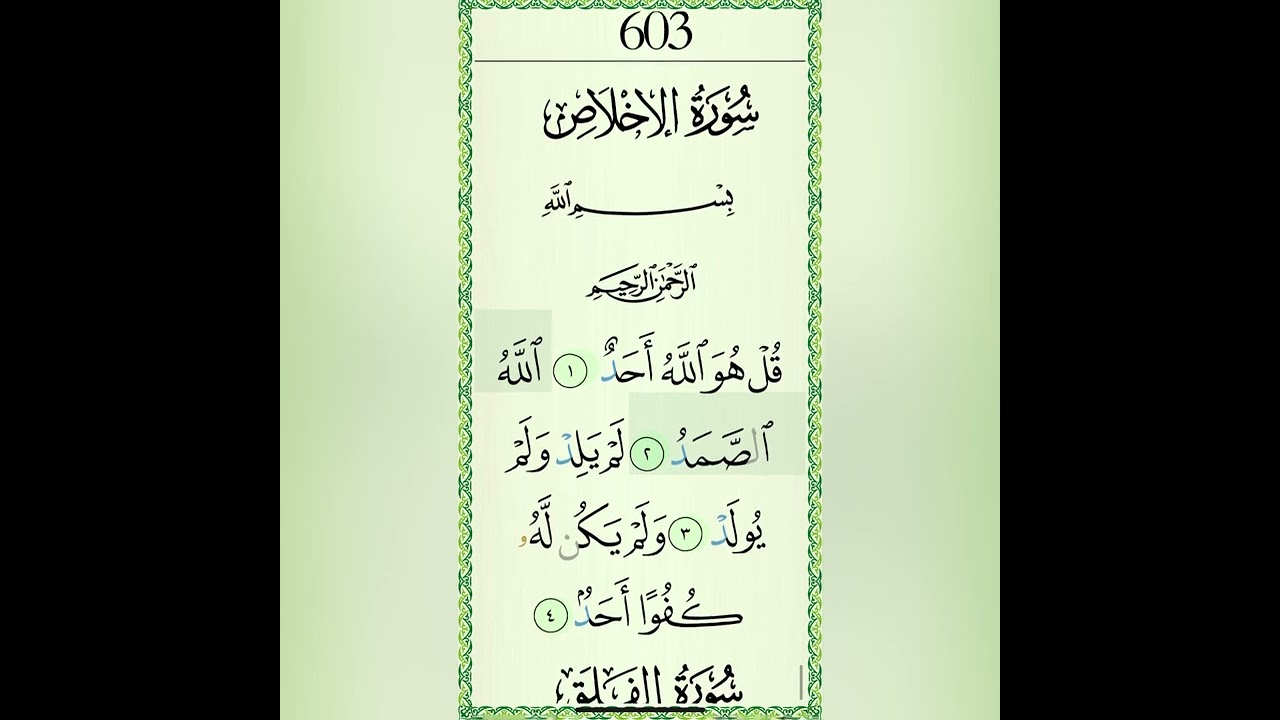 603
سُورَةُ الإِخْلَاصِ
بِسْمِ ٱللَّهِ
ٱلرَّحْمَٰنِ ٱلرَّحِيمِ
قُلْ هُوَ ٱللَّهُ أَحَدٌ ١ ٱللَّهُ
ٱلصَّمَدُ ٢ لَمْ يَلِدْ وَلَمْ
يُولَدْ ٣ وَلَمْ يَكُن لَّهُۥ
كُفُوًا أَحَدٌۢ ٤
سُورَةُ الفَلَقِ